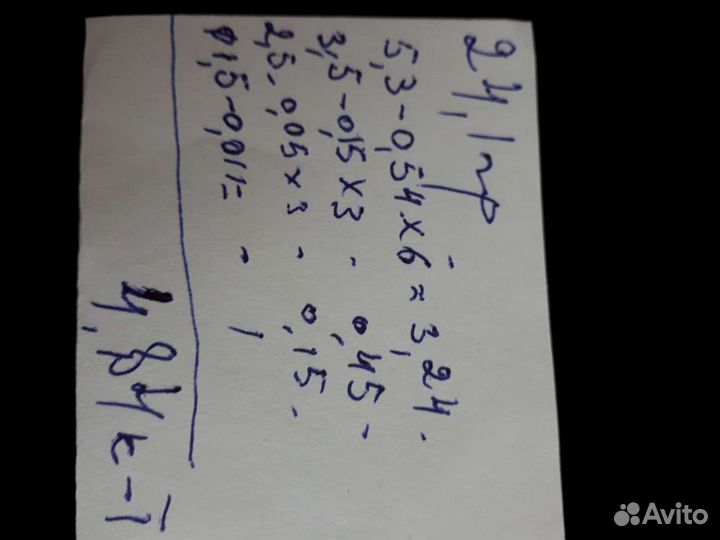 24,1 гр
5,3-0,54×6=3,24.
3,5-0,15×3 - 0,45-
2,5-0,05×3 - 0,15.
1,5-0,011= - 1
4,84 к-т
Avito